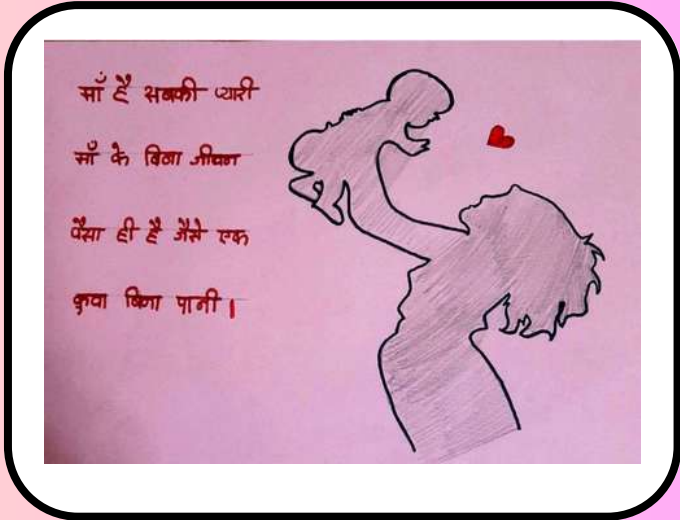 माँ है सबकी प्यारी
माँ के बिना जीवन
वैसा ही है जैसे एक
कुवा बिना पानी।